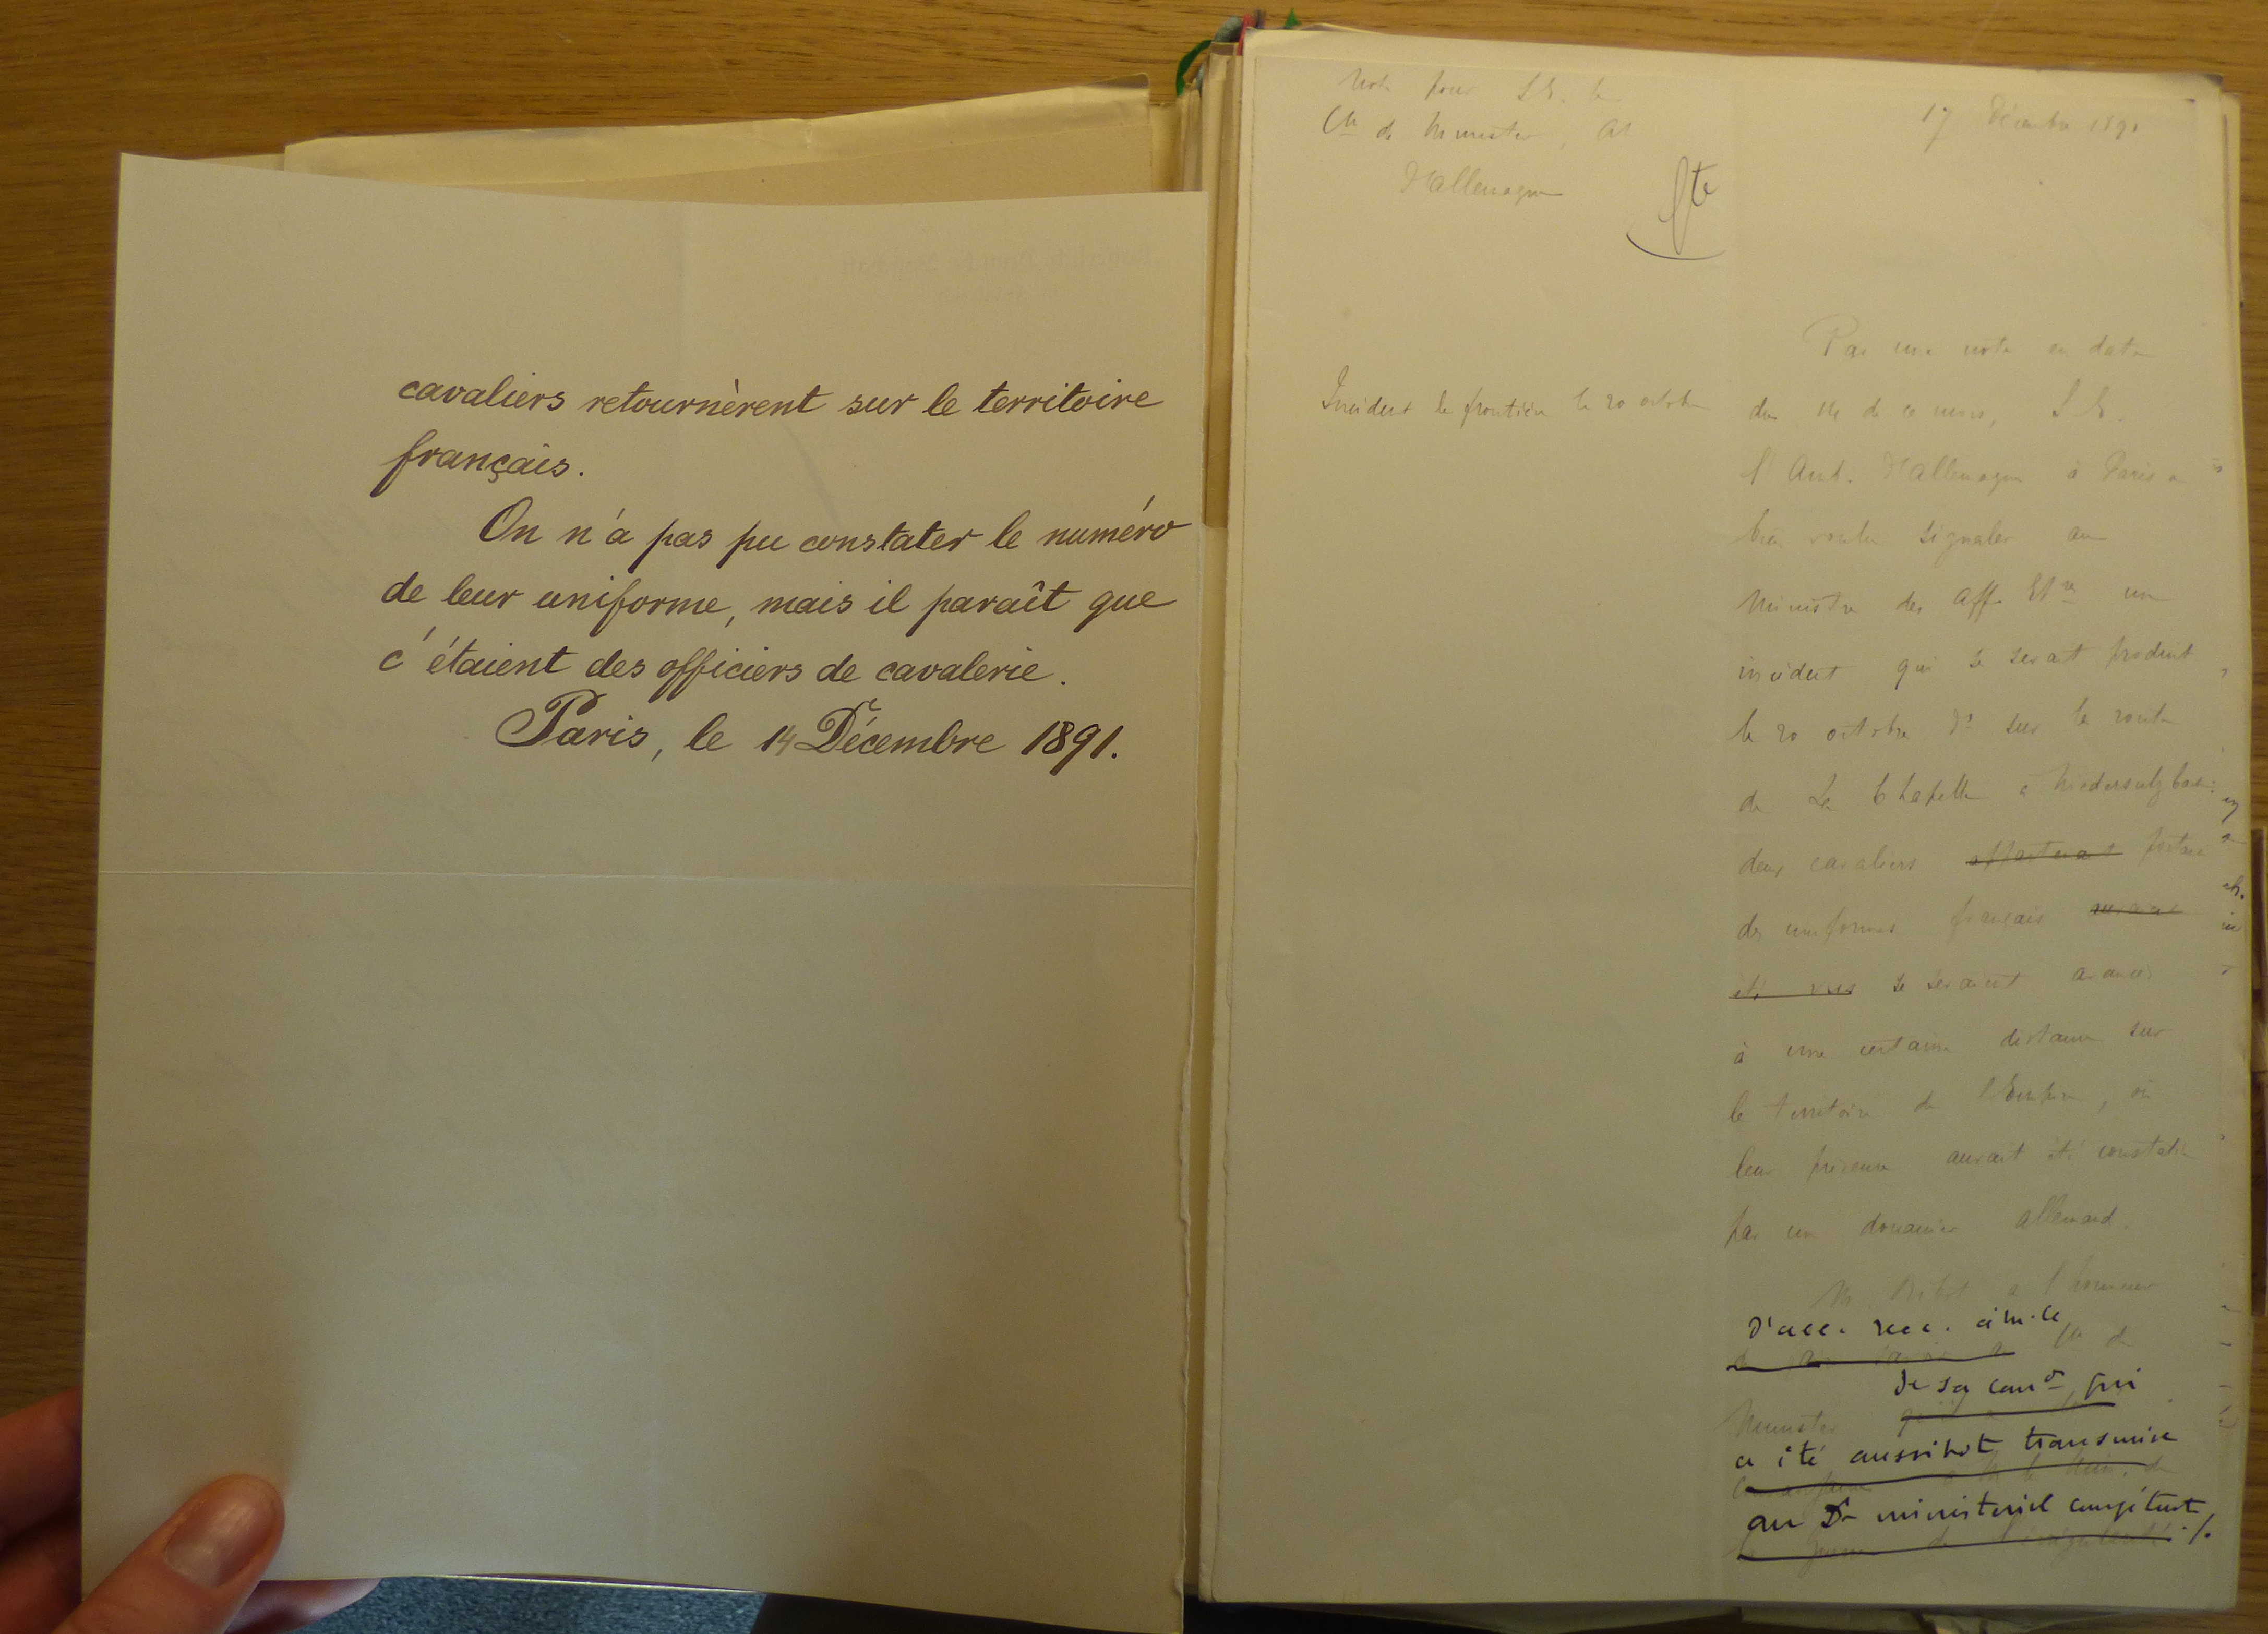 cavaliers retournèrent sur le territoire
français.
On n'a pas pu constater le numéro
de leur uniforme, mais il paraît que
c'étaient des officiers de cavalerie.
Paris, le 14 Décembre 1891.
Note pour S. E. le
Cte de Munster, Amb.
d'Allemagne
17 Décembre 1891
Incident de frontière le 20 octobre
Par une note en date
du 14 de ce mois, S. E.
l'Amb. d'Allemagne à Paris a
bien voulu signaler au
Ministre des Aff. Etres un
incident qui se serait produit
le 20 octobre dr sur la route
de La Chapelle à Niedersulzbach:
deux cavaliers appartenant portant
des uniformes français auraient
été vus se seraient avancés
à une certaine distance sur
le territoire de l'Empire, où
leur présence aurait été constatée
par un douanier allemand.
M. Ribot a l'honneur
d'acc. rec. à M. le
Cte de
de sa comon qui
Munster
a été aussitôt transmise
au Dt ministériel compétent ./.